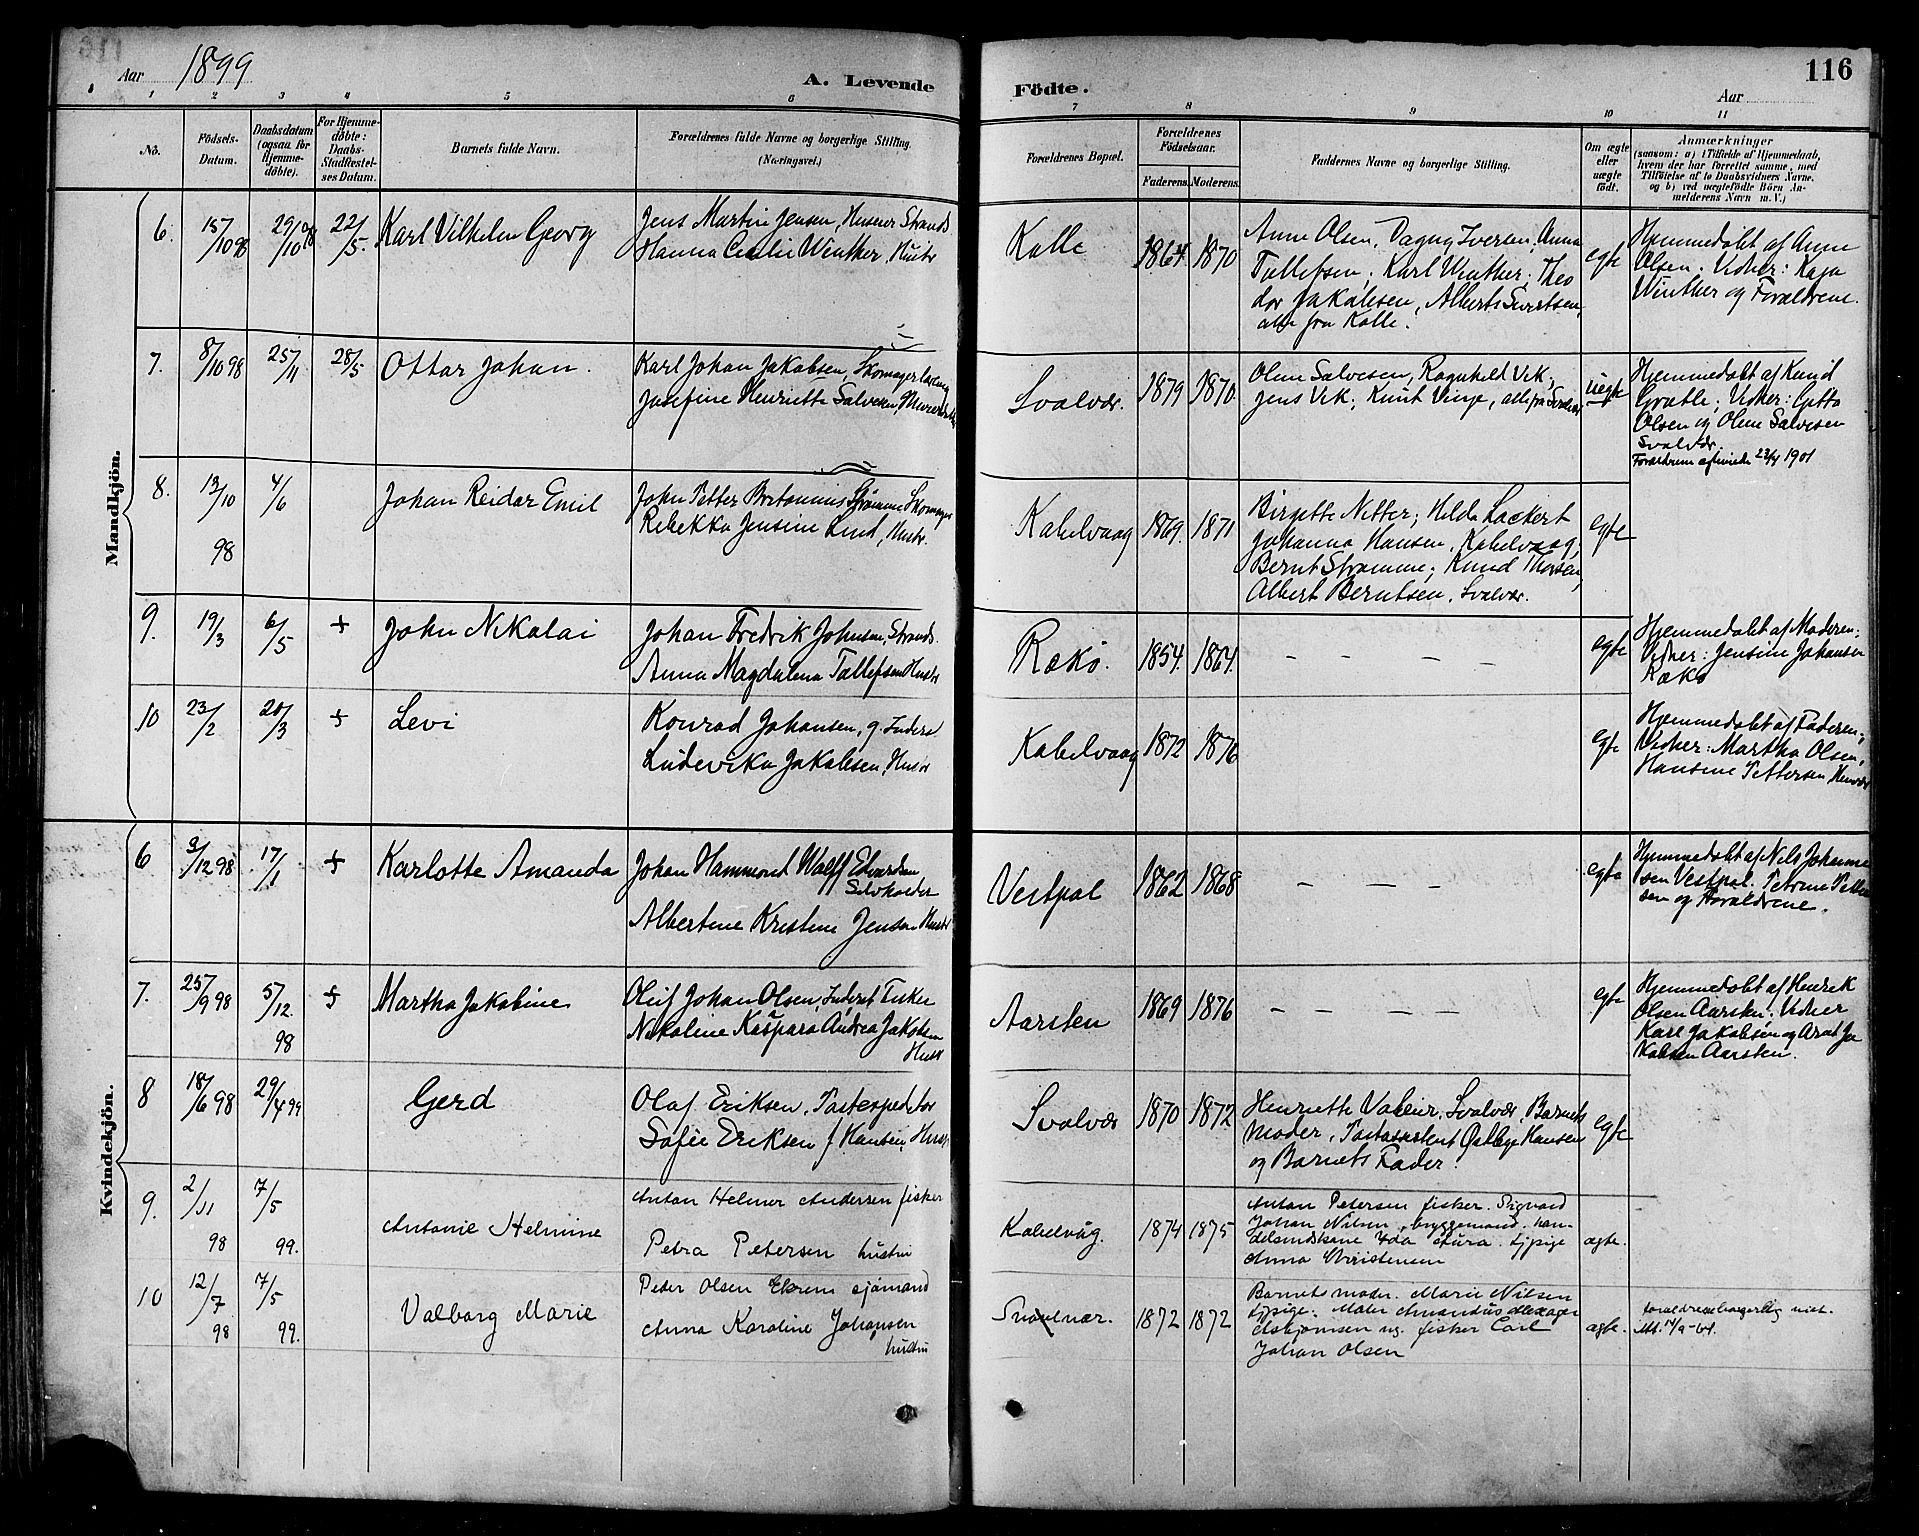 116
Aar 1899
A. Levende Födte.
Aar
1 2 3 4 5 6 7 8 9 10 11
No.
Födsels-
Datum.
Daabsdatum
(ogsaa for
Hjemme-
döbte).
For Hjemme-
döbte:
Daabs-
Stadfæstel-
ses Datum.
Barnets fulde Navn.
Forældrenes fulde Navne og borgerlige Stilling.
(Næringsvei.)
Forældrenes Bopæl.
Forældrenes
Födselsaar.
Faderens. Moderens.
Faddernes Navne og borgerlige Stilling.
Om ægte
eller
uægte
födt.
Anmærkninger
(saasom: a) i Tilfælde af Hjemmedaab,
hvem der har forrettet samme, med
Tilföielse af to Daabsvidners Navne,
og b) ved uægtefödte Börn An-
melderens Navn m.V.)
Mandkjön.
6. 15/10 98 29/10 98 22/5. Karl Vilhelm Georg
Jens Martin Jensen, Husmer Strands
Hanna Cecilie Winther, Hustr
Kalle 1864 1870
Anne Olsen, Dagny Iversen, Anna
Tollefsen, Karl Winther, Theo
dor Jakobsen, Albert Sivertsen,
alle fra Kalle.
egte
Hjemmedøbt af Anne
Olsen. Vidner: Kaja
Winther og Forældrene.
7. 8/10 98 25/11 28/5 Ottar Johan.
Karl Johan Jakobsen, Skomager
Josefine Henriette Salvesen,
Svolvær. 1879 1870.
Oline Salvesen, Ragnhild Vik,
Jens Vik, Knut Vinje, alle fra Svolvær
uegte
Hjemmedøbt af Knud
Grætle, Vidner: Gitta
Olsen og Oline Salvesen
Svolvær.
Forældrene ægteviede 23/4 1901
8. 13/10 98 4/6 Johan Reidar Emil
John Petter Bertonius Strømme Skomager
Rebekka Jensine Lind, Hustr.
Kabelvaag 1869. 1871
Birgitte Netter, Hilda Lockert
Johanna Hansen, Kabelvaag,
Bernt Strømme, Knud Thorsen,
Albert Berntsen, Svolvær.
egte
9. 19/3 6/5 + John Nikolai
Johan Fredrik Johnsen, Strands.
Anna Magdalena Tollefsen Hustr
Rækø. 1854. 1864.
– – – –
egte
Hjemmedøbt af Moderen;
Vidner: Jensine Johansen
Rækø
10 23/2 20/3 + Levi
Konrad Johansen, g. Inders
Ludevika Jakobsen, Hustr
Kabelvaag 1872 1876
egte
Hjemmedøbt af Faderen;
Vidner: Martha Olsen,
Hansine Pettersen
Kvindekjön.
6 3/12 98 17/1 + Karlotte Amanda
Johan Hammond Wolff Edvardsen
Selvholder
Albertine Kristine Jensen Hustr
Vestpol 1862 1868
– – –
egte
Hjemmedøbt af Nils Johanne
sen Vestpol. Petrine Petter
sen og Forældrene.
7. 25/9 98 5/12. 98 + Martha Jakobine
Oluf Johan Olsen, Inderst Fisker
Nikoline Kaspara Andrea Jakobsen
Hustr
Aarsten 1869 1876
– – – –
egte
Hjemmedøbt af Henrik
Olsen Aarsten. Vidner
Karl Jakobsen og Arnt Ja
kobsen Aarsten.
8 18/6 98 29/4 99 Gerd
Olaf Eriksen, Postexpeditor
Sofie Eriksen f. Hansen, Hustr
Svolvær 1870 1872
Henriette Valeur, Svolvær, Barnets
Moder, Postassistent Østbye Hansen
og Barnets Fader.
egte
9. 2/11 98 7/5 99. Antonie Helmine
Anton Helmer Andersen fisker
Petra Petersen hustru
Kabelvåg. 1874 1875
Anton Petersen fisker. Sigvard
Johan Nilsen, bryggemand. han-
delsmdskone Ida Aura. tjpige
Anna Kristensen
ægte.
10 12/7 98 7/5 99. Valborg Marie
Peder Olsen Ekrem sjömand
Anna Karoline Johansen
hustru
Svolvær. 1872 1872
Barnets moder. Marie Nilsen
tjpige. Maler Amandus
Asbjørnsen og fisker Carl
Johan Olsen
ægte.
forældrene borgerlig viet.